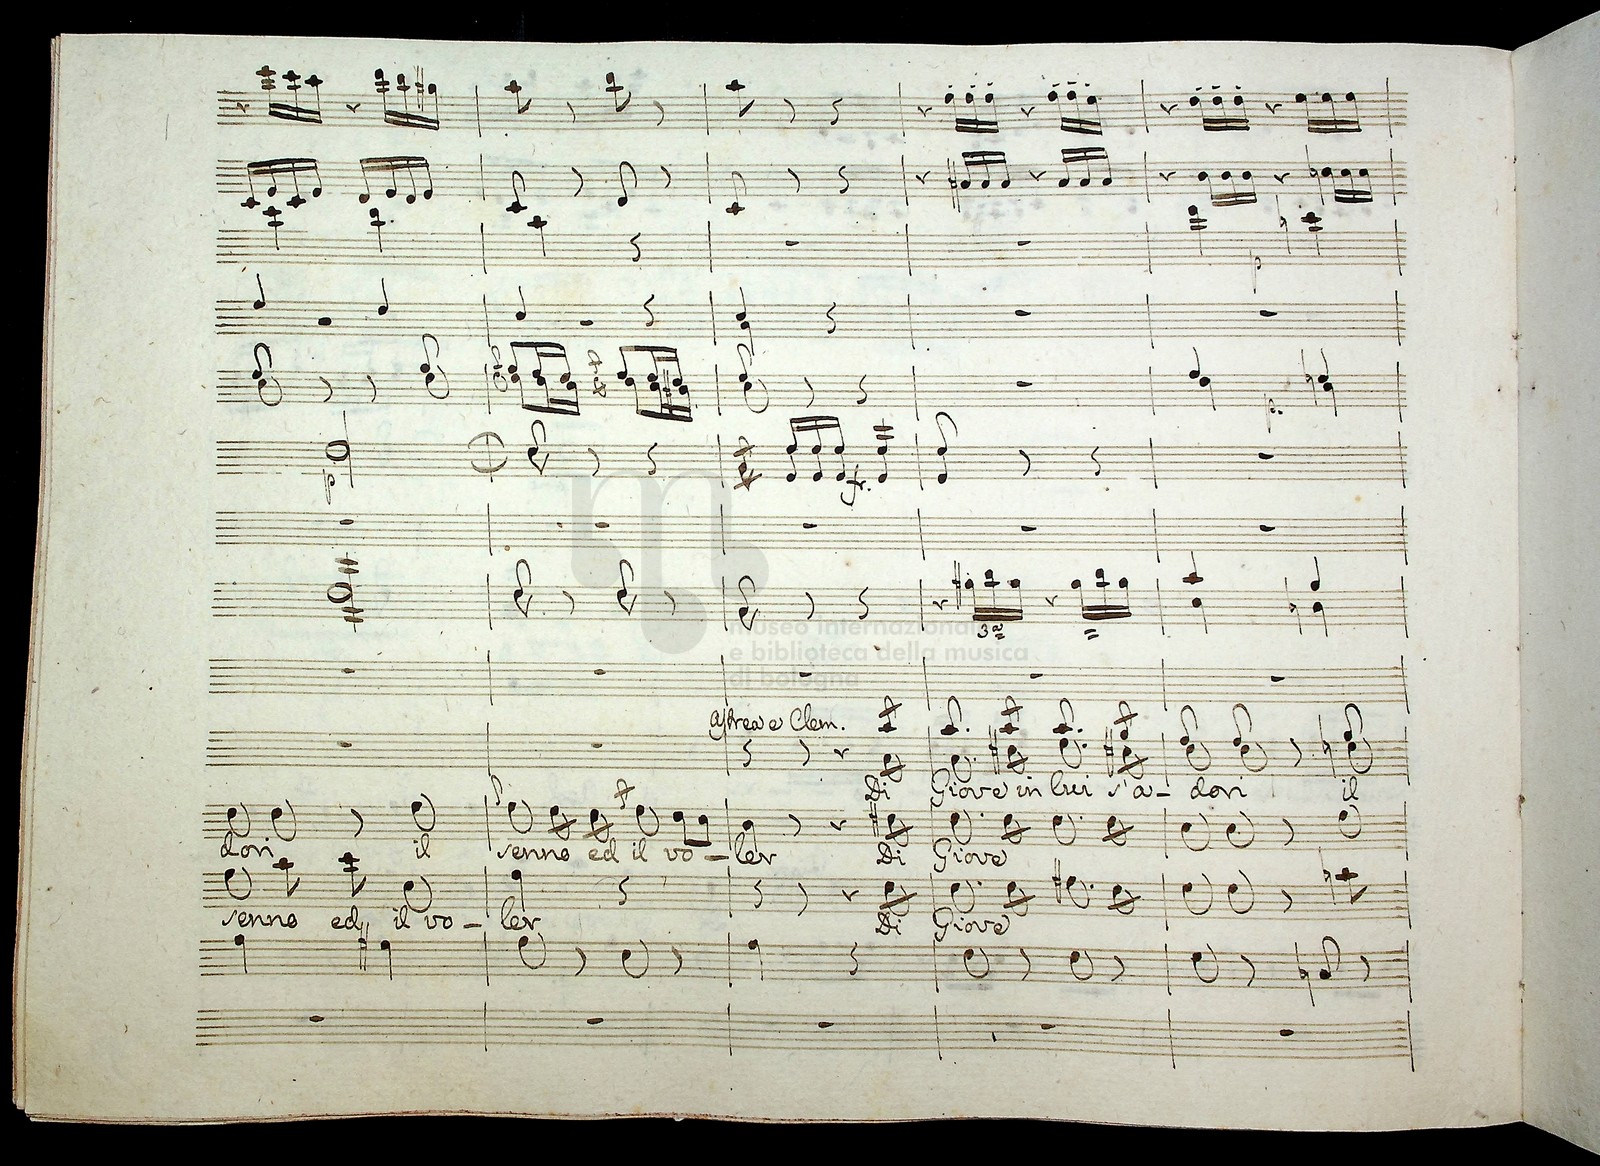 p
p.
p
f.
museo internazionale
3a
e biblioteca della musica
di bologna
Astrea e Clem.
Di Giove in lui s'a- dori il
dori il senno ed il vo - ler Di Giove
senno ed il vo - ler Di Giove